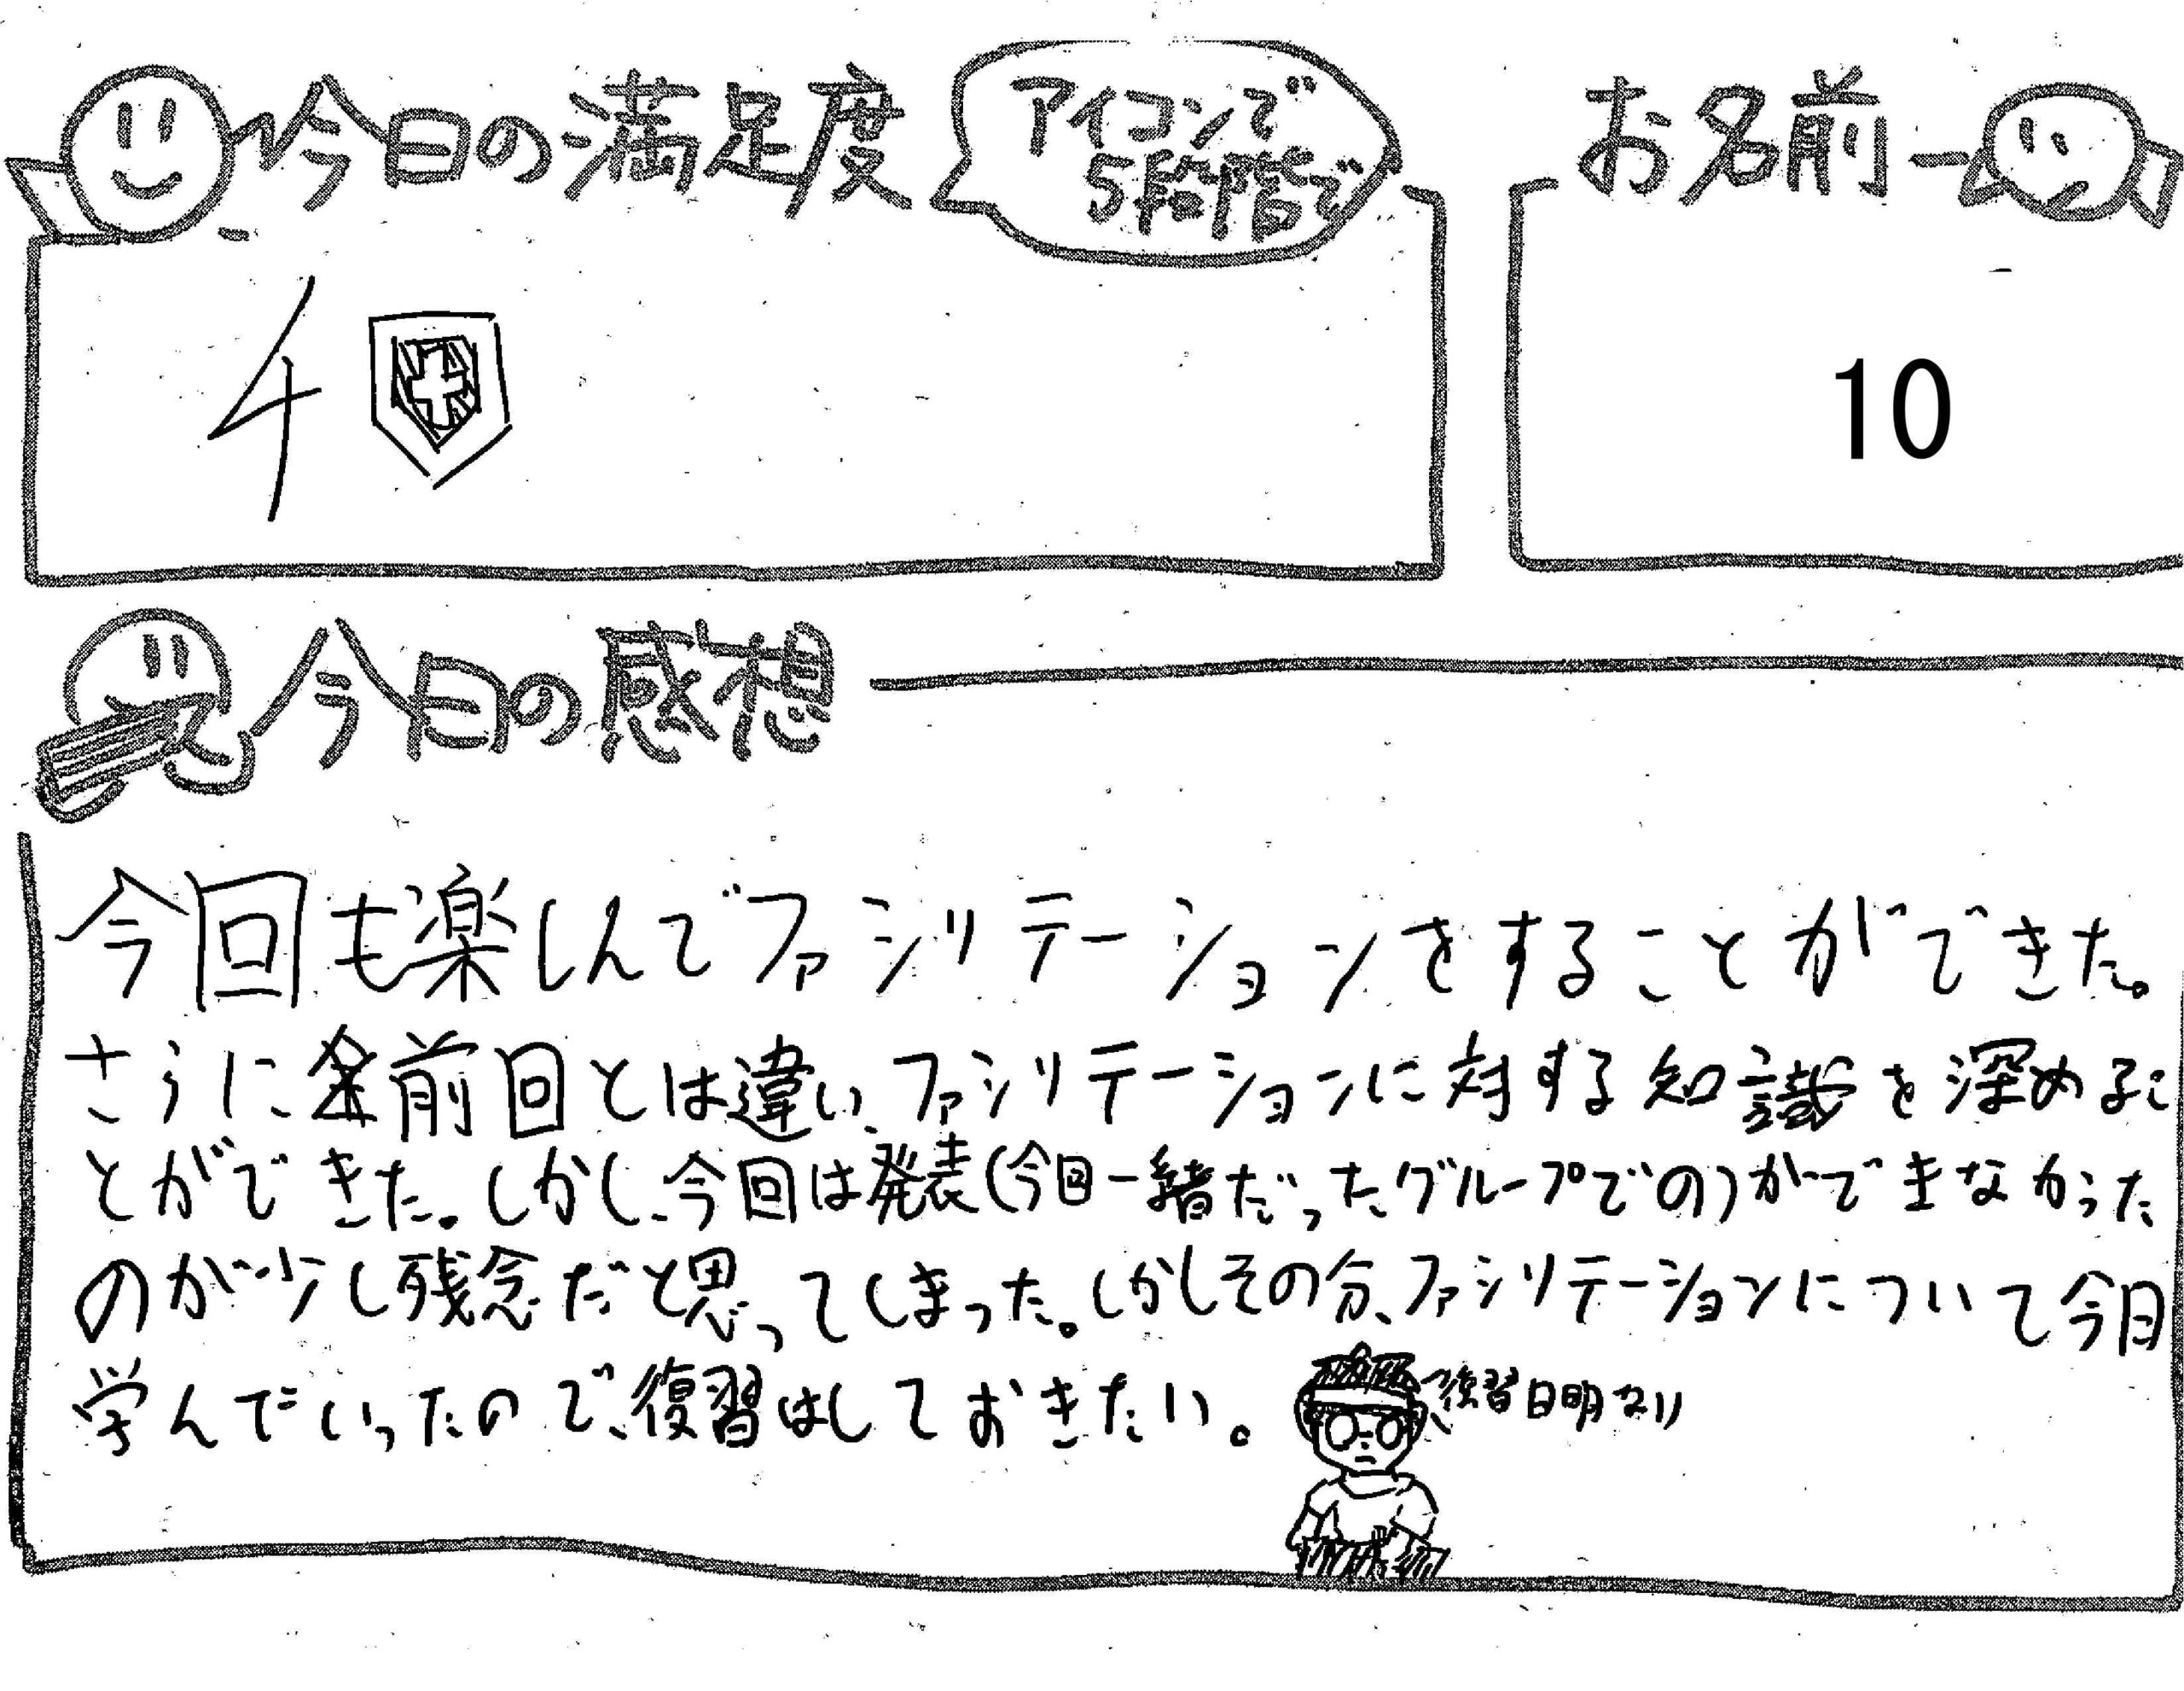 今日の満足度
アイコンで
5段階で
お名前
4
10
今日の感想
今回も楽しんでファシリテーションをすることができた。
さらに前回とは違い、ファシリテーションに対する知識を深めるこ
とができた。しかし、今回は発表(今回一緒だったグループでの)ができなかった
のが少し残念だと思ってしまった。しかしその分、ファシリテーションについて今日
学んでいったので、復習はしておきたい。
復習日明